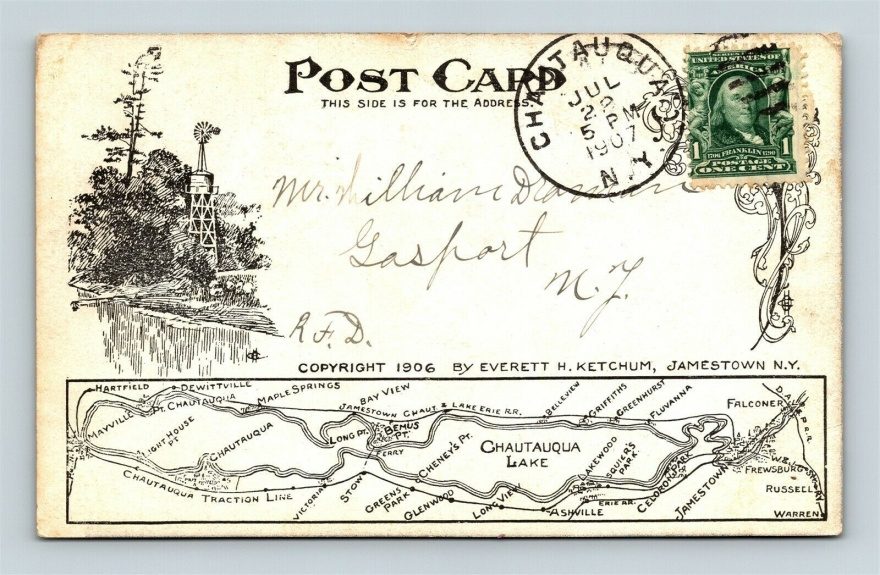 POST CARD
THIS SIDE IS FOR THE ADDRESS.
CHAUTAUQUA
JUL
22
5 PM
1907
N.Y.
SERIES 1902
UNITED STATES OF
AMERICA
1 1706 FRANKLIN 1790 1
POSTAGE
ONE CENT
Mr. William
Gasport
N.Y.
R.F.D.
COPYRIGHT 1906 BY EVERETT H. KETCHUM, JAMESTOWN N.Y.
HARTFIELD
DEWITTVILLE
PT. CHAUTAUQUA
MAPLE SPRINGS
BAY VIEW
JAMESTOWN CHAUT. & LAKE ERIE R.R.
BELLEVIEW
GRIFFITHS
GREENHURST
FLUVANNA
FALCONER
MAYVILLE
LIGHT HOUSE PT
CHAUTAUQUA
LONG PT.
BEMUS PT.
FERRY
CHENEY'S PT.
CHAUTAUQUA
LAKE
LAKEWOOD
SQUIER'S PARK
CELORON PARK
JAMESTOWN
FREWSBURG
RUSSELL
WARREN
CHAUTAUQUA TRACTION LINE
VICTORIA
STOW
GREENS PARK
GLENWOOD
LONG VIEW
ASHVILLE
ERIE RR.